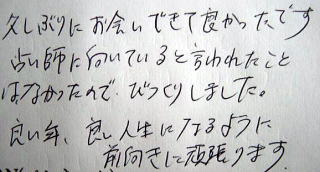 久しぶりにお会いできて良かったです
占い師に向いていると言われたこと
はなかったので びっくりしました。
良い年、良い人生になるように
前向きに頑張ります